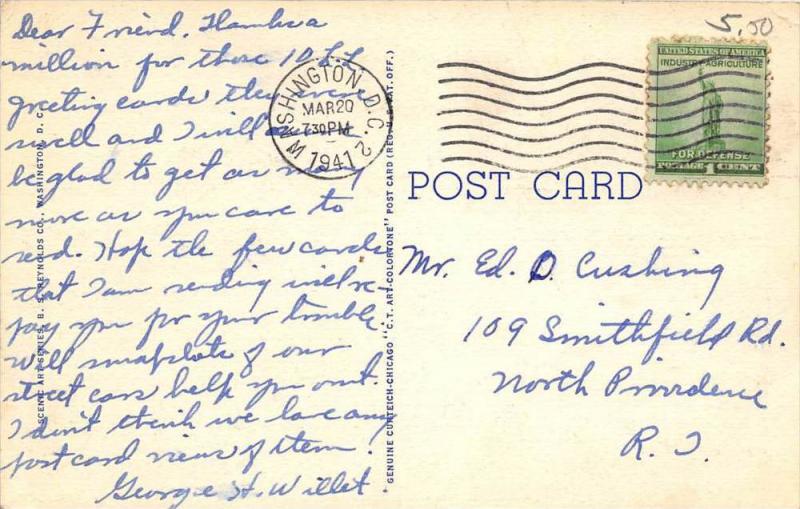 Dear Friend, Thanks a
million for those 10 L.L.
greeting cards they were
swell and I will sure
be glad to get as many
more as you care to
send. Hope the few cards
that I am sending will re-
pay you for your trouble.
Will snapshots of our
street cars help you out.
I don't think we have any
post card views of them.
George H. Willet.
SCENIC ART SERIES, B. S. REYNOLDS CO., WASHINGTON, D. C.
GENUINE CURTEICH-CHICAGO "C.T. ART-COLORTONE" POST CARD (REG. U. S. PAT. OFF.)
WASHINGTON, D.C. 2
MAR 20
7 30 PM
1941
5.00
UNITED STATES OF AMERICA
INDUSTRY AGRICULTURE
FOR DEFENSE
POSTAGE 1 CENT
POST CARD
Mr. Ed. O. Cushing
109 Smithfield Rd.
North Providence
R. I.